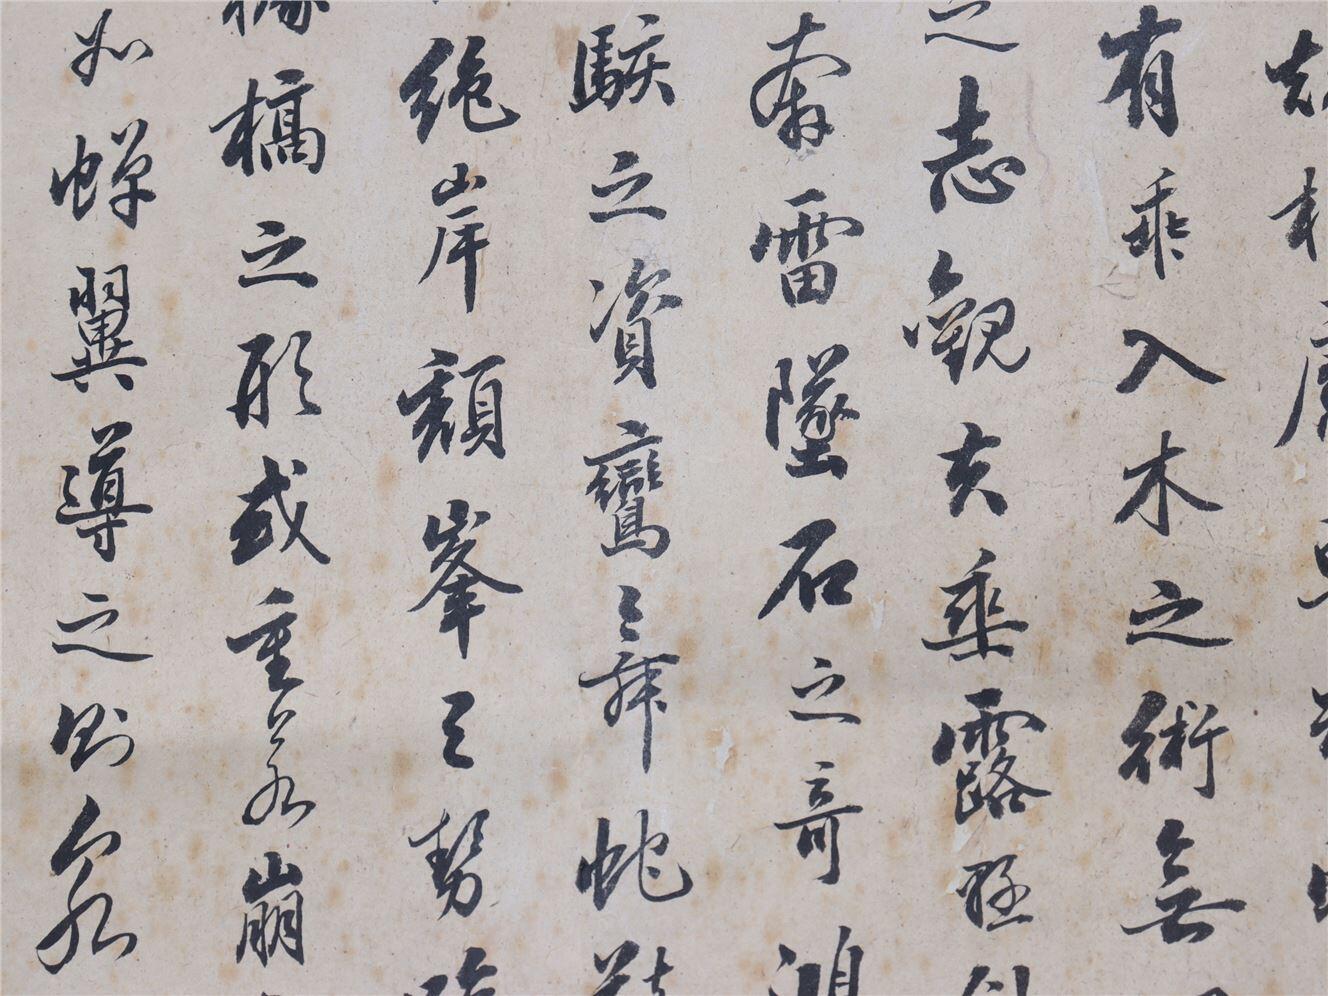 有乖入木之術無
之志觀夫垂露懸
奔雷墜石之奇鴻
駭之資鸞舞蛇
絕岸頹峯之勢臨
據槁之形或重若崩
如蟬翼導之則泉